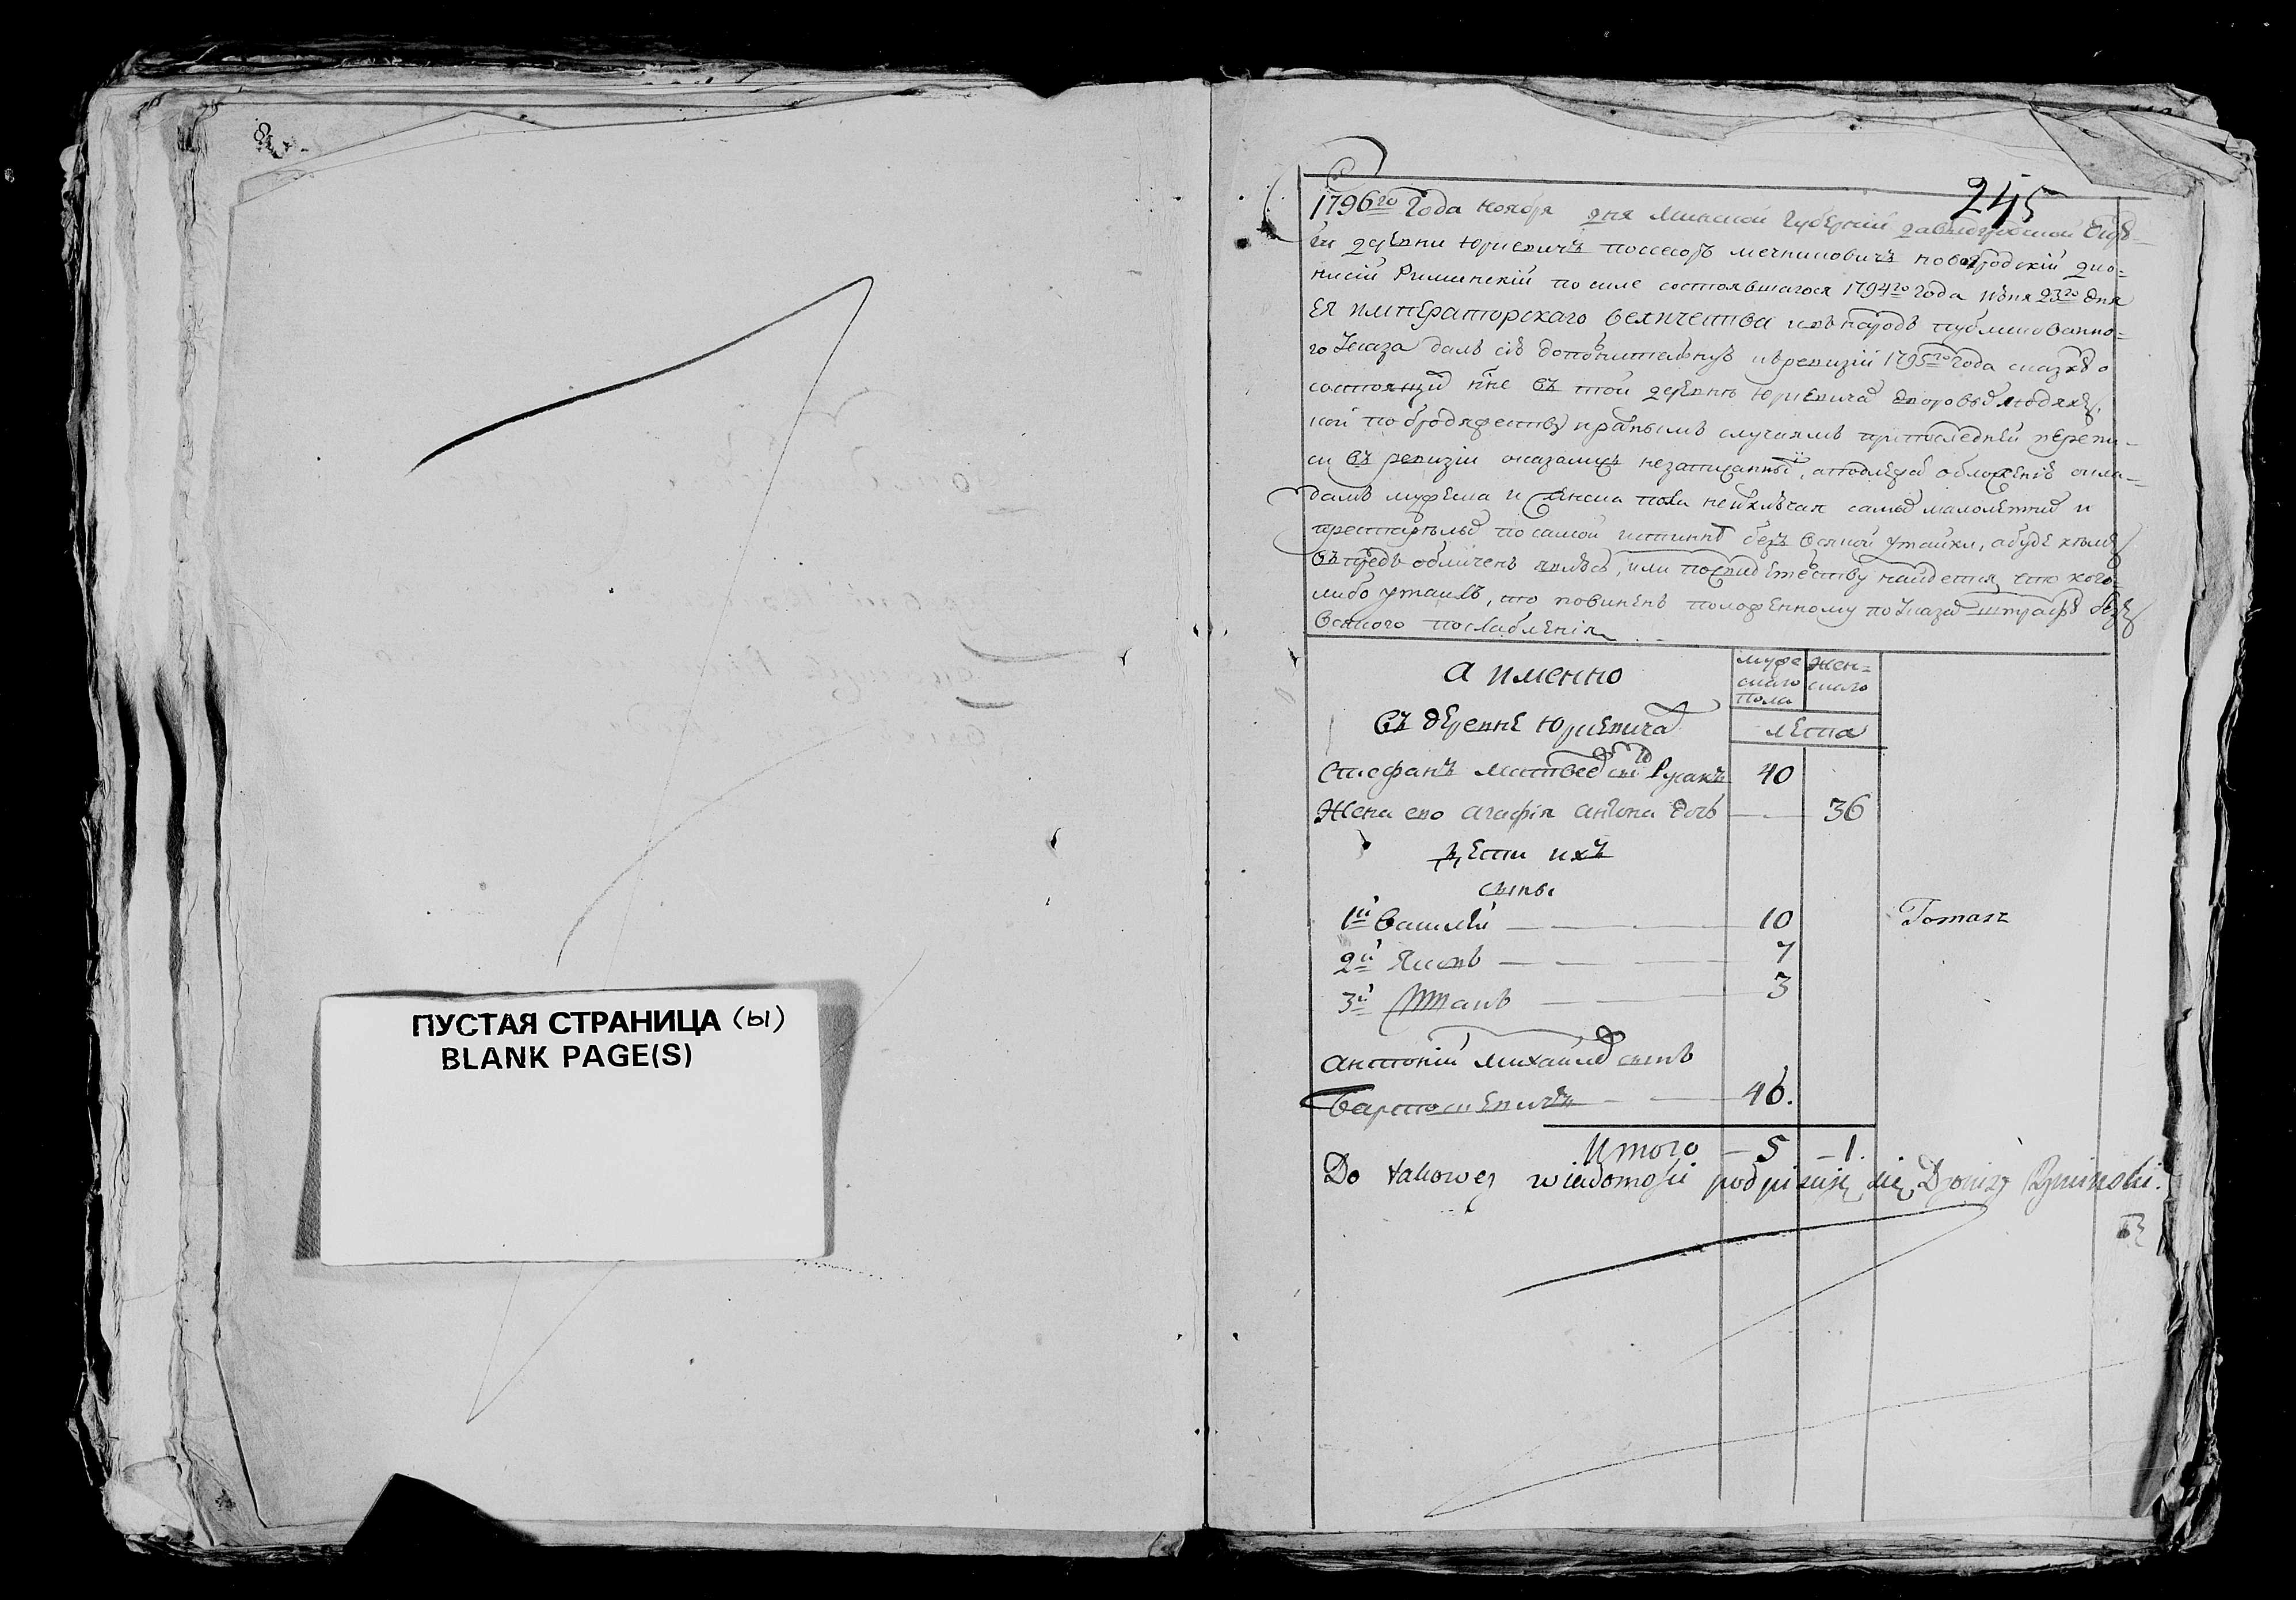 ПУСТАЯ СТРАНИЦА (ы)
BLANK PAGE(S)
245
1796го Года ноября дня Минской Губернии
деревни Юриевичъ поссесоръ мечниковичъ новогродский дио=
нисий Риминский по силе состоявшагося 1794го Года Июня 23го дня
Ея императорскаго величества и въ народъ публикованно=
го Указа далъ сию дополнительную к ревизии 1795го Года сказку о
состоящих нне въ той деревне Юриевичах дворовых людях
кои по бродяжеству и разным случаямъ при последней перепи-
си въ ревизии оказались незаписанные, а подлежа обложению окла-
дамъ мужеска и женска пола не исключая самых малолетних и
престарелых по самой истинне безъ всякой утайки, а буде кемъ
впредь обличенъ явлюсь, или по свидетельству найдется что кого
либо утаилъ, то повиненъ положенному по Указах штрафу безъ
всякого послабления
а именно
мужескаго пола
Женскаго
въ деревне Юриевичах
лета
Стефанъ Матвеев снъ Русакъ 40
Жена его Агафия Антона дочь 36
Дети ихъ
сыны
1й Василей 10 Томаш
2й Якимъ 7
3й 3
Антоний Михайлов сынъ
Бартошевичъ 46.
Итого 5 1.
Do takowey wiadomości podpisuię się Dionizy Rymiński.